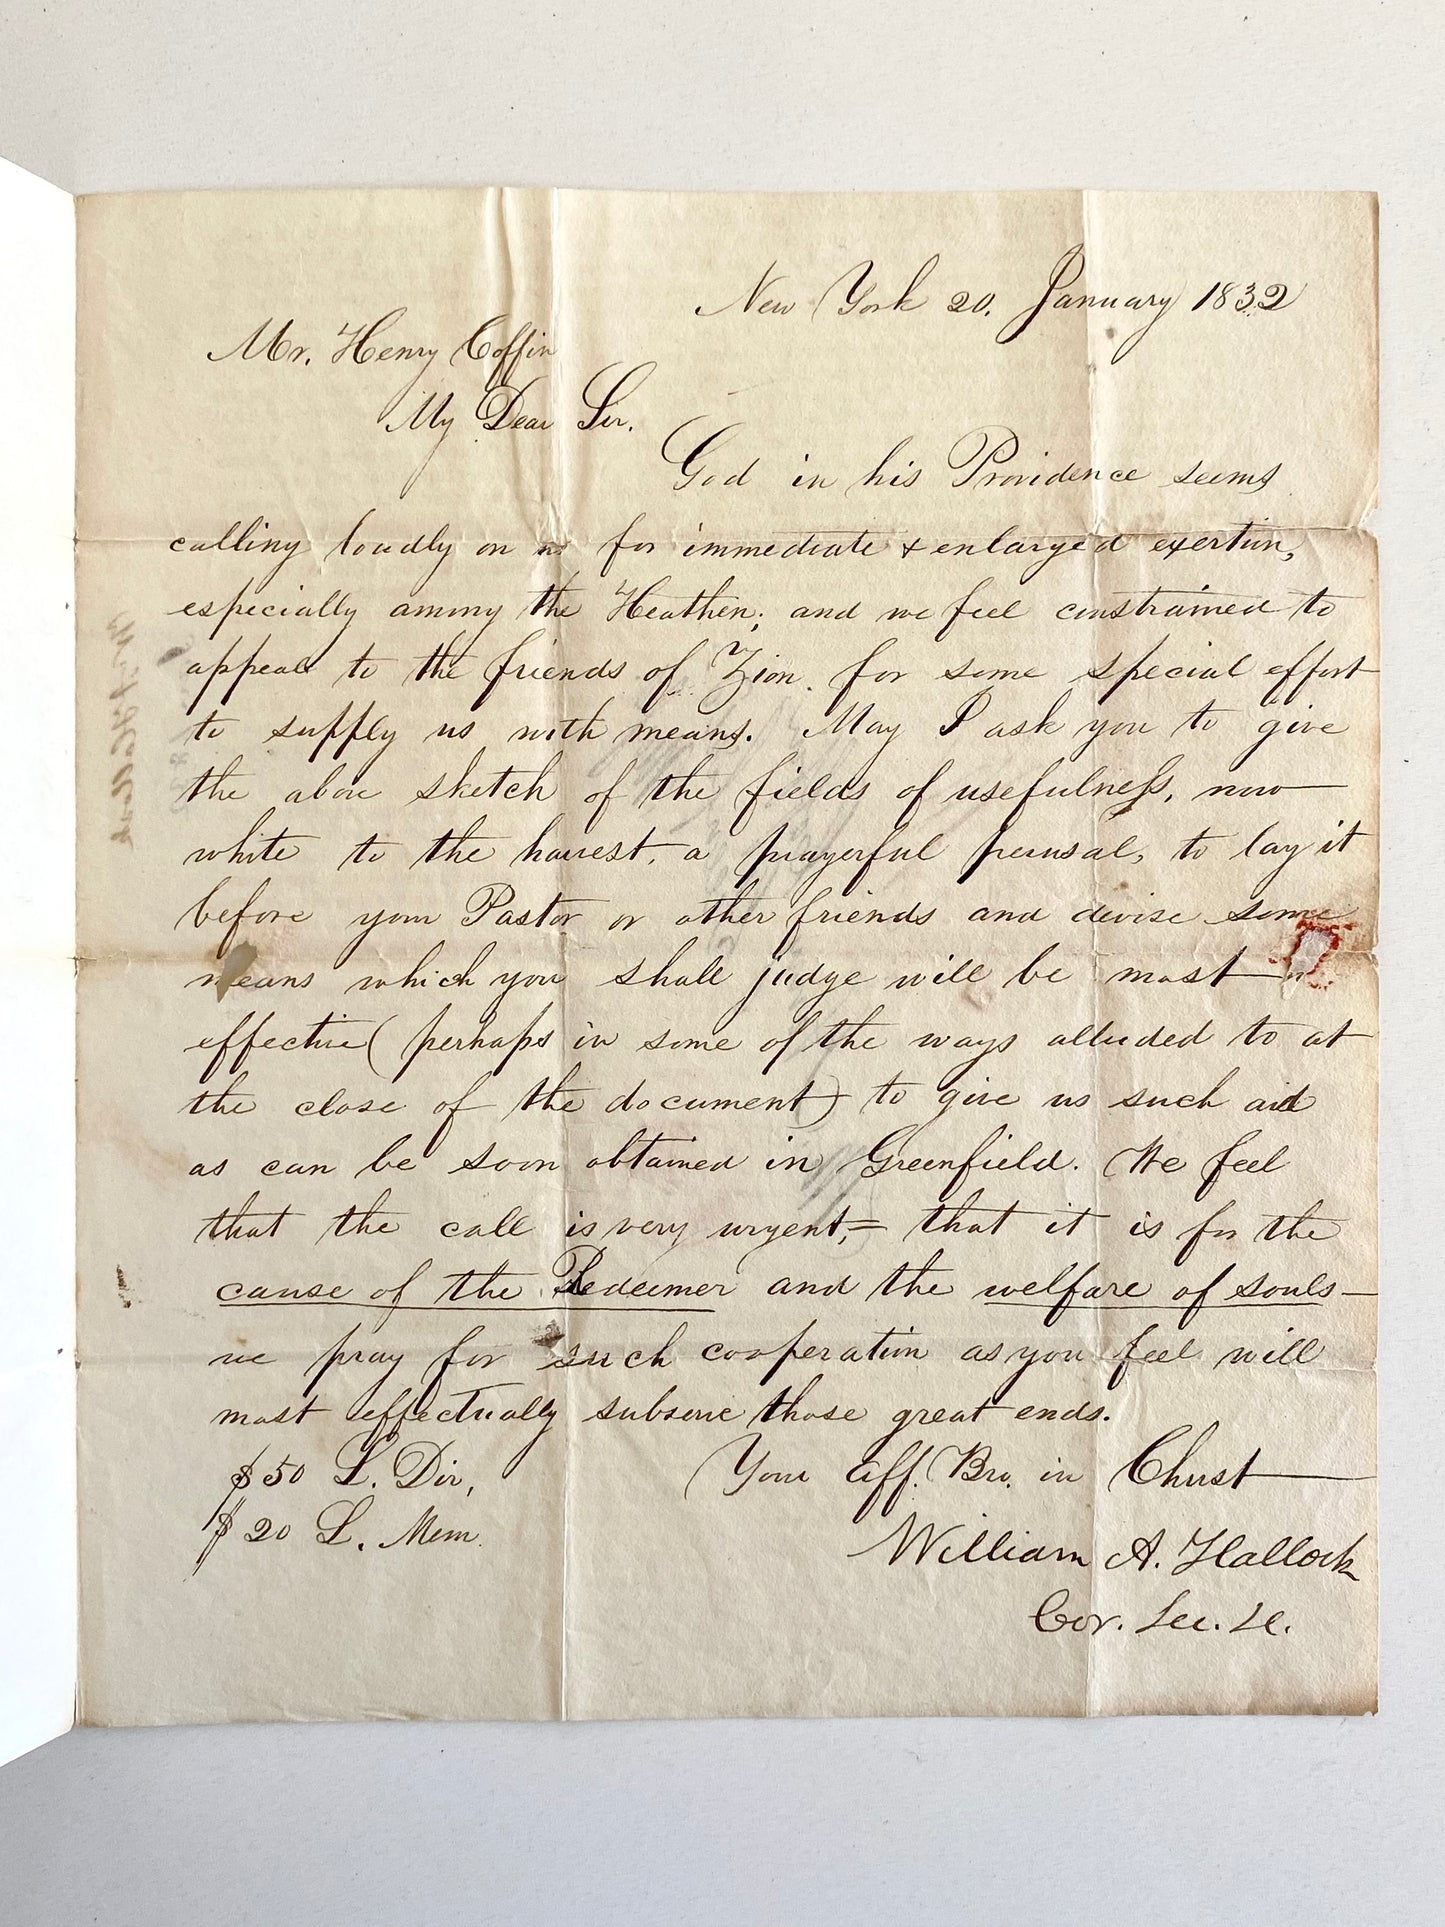 New York 20. January 1832
Mr. Henry Coffin
My Dear Sir.
God in his Providence seems
calling loudly on us for immediate & enlarged exertion,
especially among the Heathen; and we feel constrained to
appeal to the friends of Zion for some special effort
to supply us with means. May I ask you to give
the above sketch of the fields of usefulness, now
white to the harvest, a prayerful perusal, to lay it
before your Pastor or other friends and devise some
means which you shall judge will be most
effective (perhaps in some of the ways alluded to at
the close of the document) to give us such aid
as can be soon obtained in Greenfield. We feel
that the call is very urgent, = that it is for the
cause of the Redeemer and the welfare of souls —
we pray for such cooperation as you feel will
most effectually subserve those great ends.
$50 L. Dir,
Your aff. Bro. in Christ
$20 L. Mem.
William A. Hallock
Cor. Sec. &c.